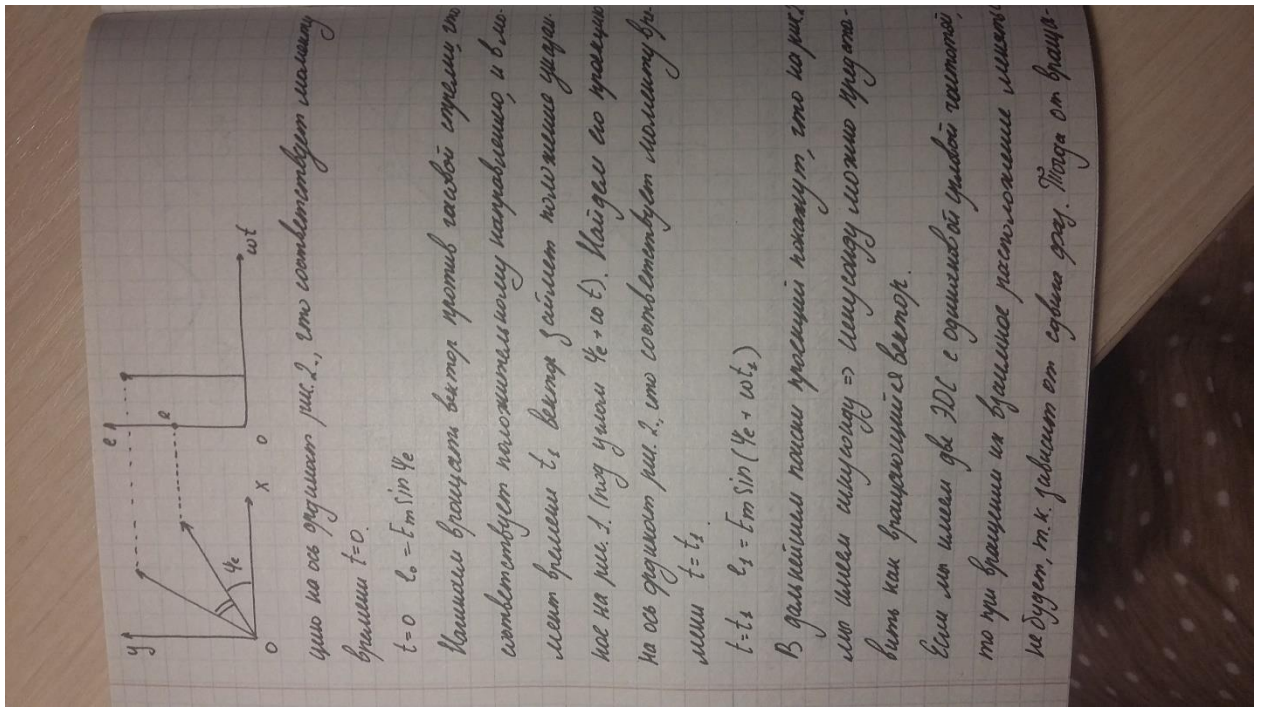 y
e
e
ψe
0
x
0
ωt
цию на ось ординат рис. 2., что соответствует моменту
времени t=0.
t=0 e₀ = Em sin ψe
Начинаем вращать вектор против часовой стрелки, что
соответствует положительному направлению, и в мо-
мент времени t₁ вектор займет положение указан-
ное на рис. 1. (под углом ψe + ωt). Найдем его проекцию
на ось ординат рис. 2., что соответствует моменту вре-
мени t = t₁.
t=t₁ e₁ = Em sin (ψe + ωt₁)
В дальнейшем поиски проекций покажут, что на рис. 2
мы имеем синусоиду => синусоиду можно предста-
вить как вращающийся вектор.
Если мы имеем две ЭДС с одинаковой угловой частотой,
то при вращении их взаимное расположение меняться
не будет, т.к. зависит от сдвига фаз. Тогда от враща-